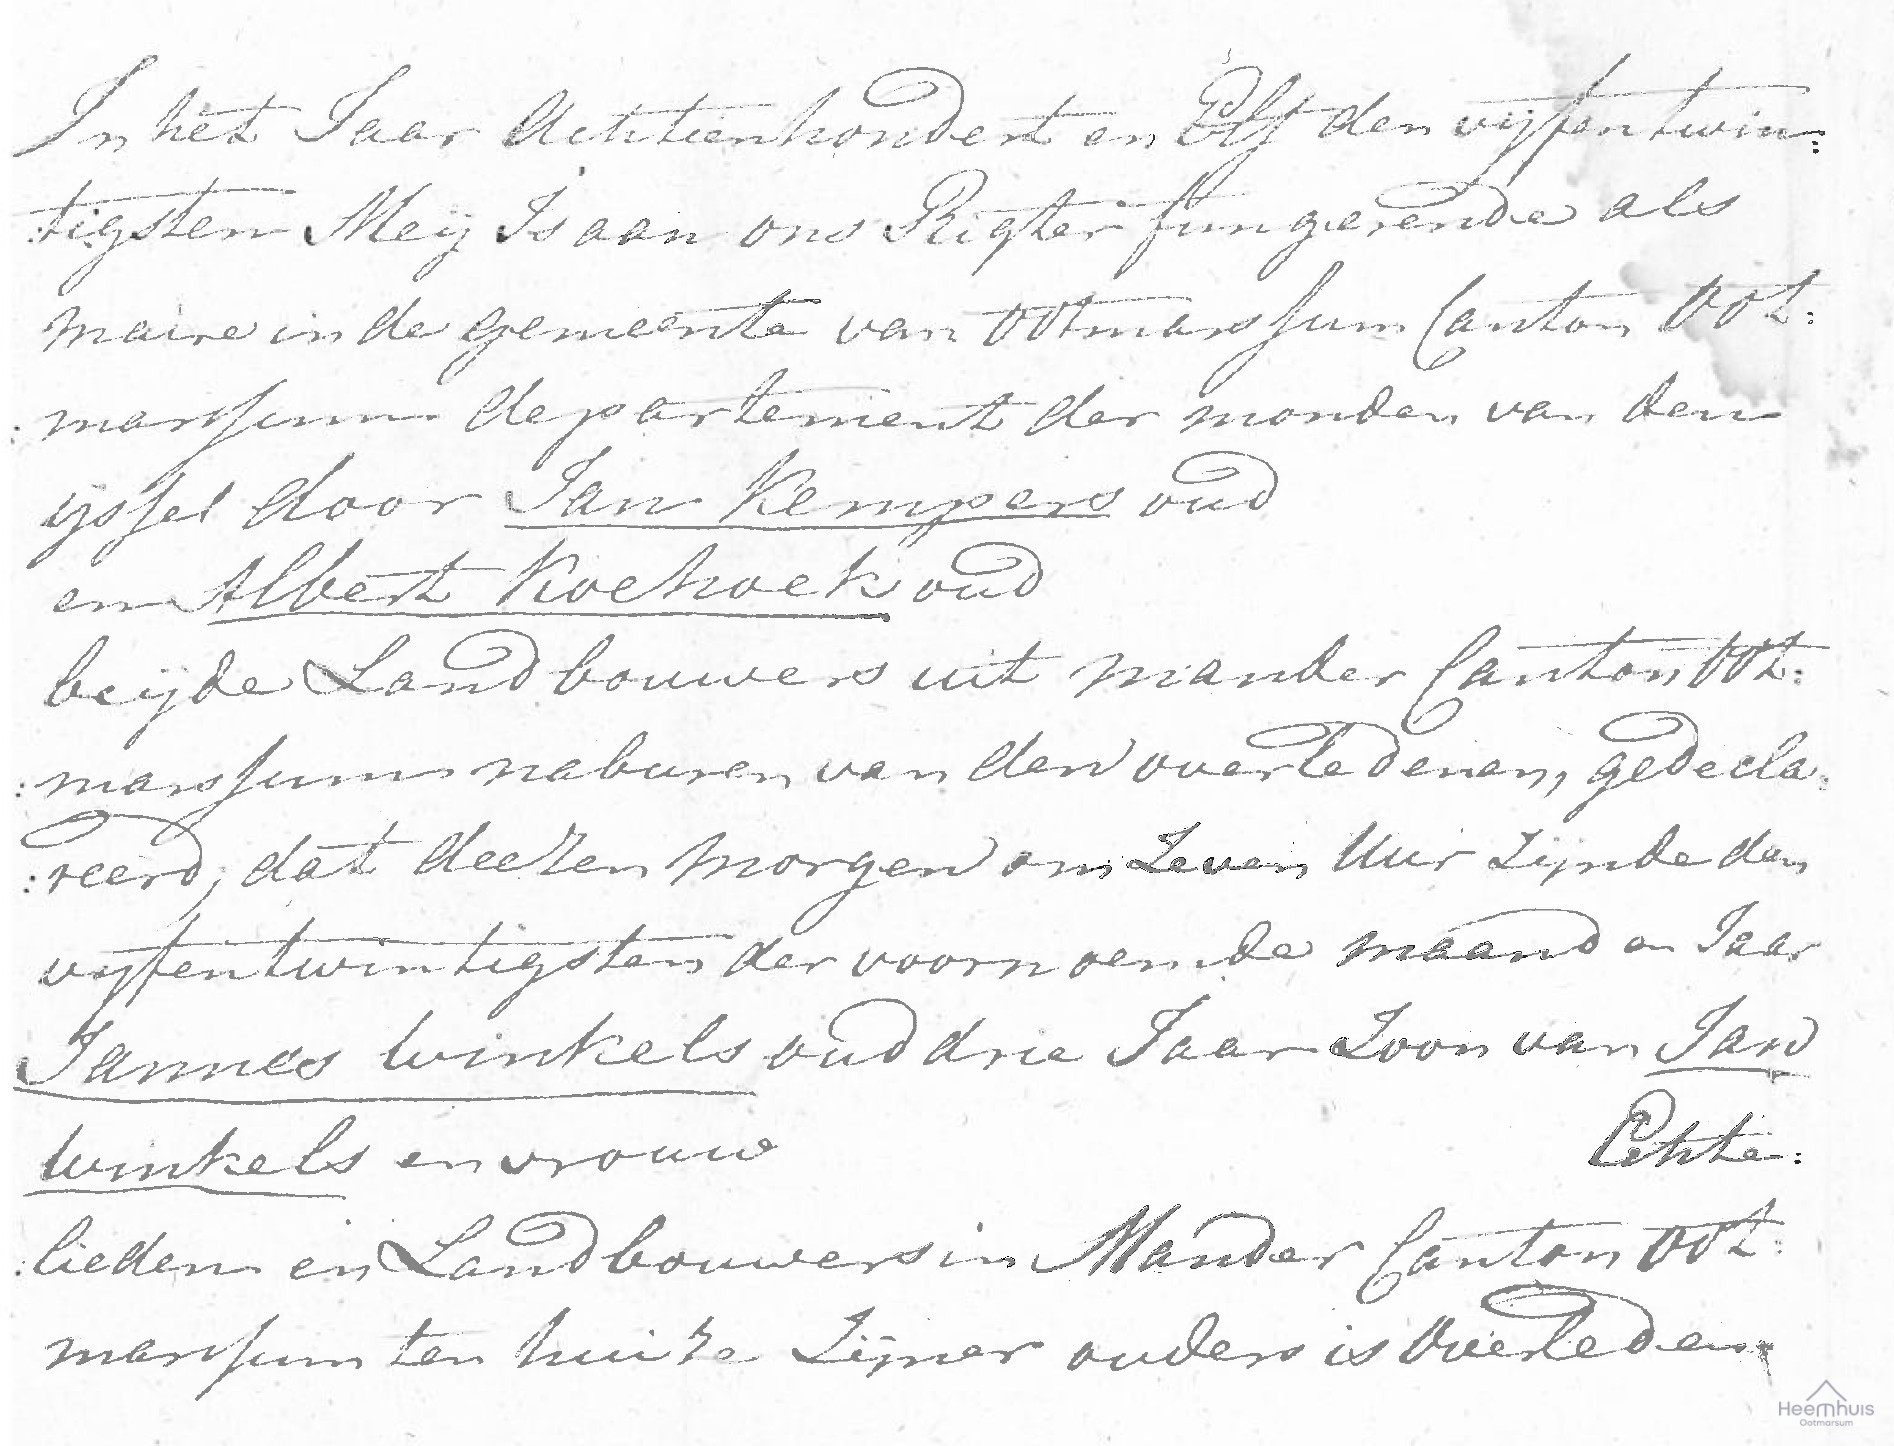 In het Jaar Achttienhondert en Elf den vyfentwin:
:tigsten Meÿ Is aan ons Rigter fungerende als
maire in de gemeente van Ootmarssum Canton Oot:
:marssum departement der monden van den
ijssel door Jan Kempers oud
en Albert Koehoek oud
beijde Landbouwers uit mander Canton Oot:
:marssum naburen van den overledenen, gedecla:
:reerd, dat deezen morgen om Zeven Uur Zijnde den
vyfentwintigsten der voornoemde maand en Jaar
Jannes Winkels oud drie Jaar Zoon van Jan
Winkels en vrouw Echte:
:lieden en Landbouwers in Mander Canton Oot:
marssum ten huize Zijner ouders is Overleden
Heemhuis
Ootmarsum